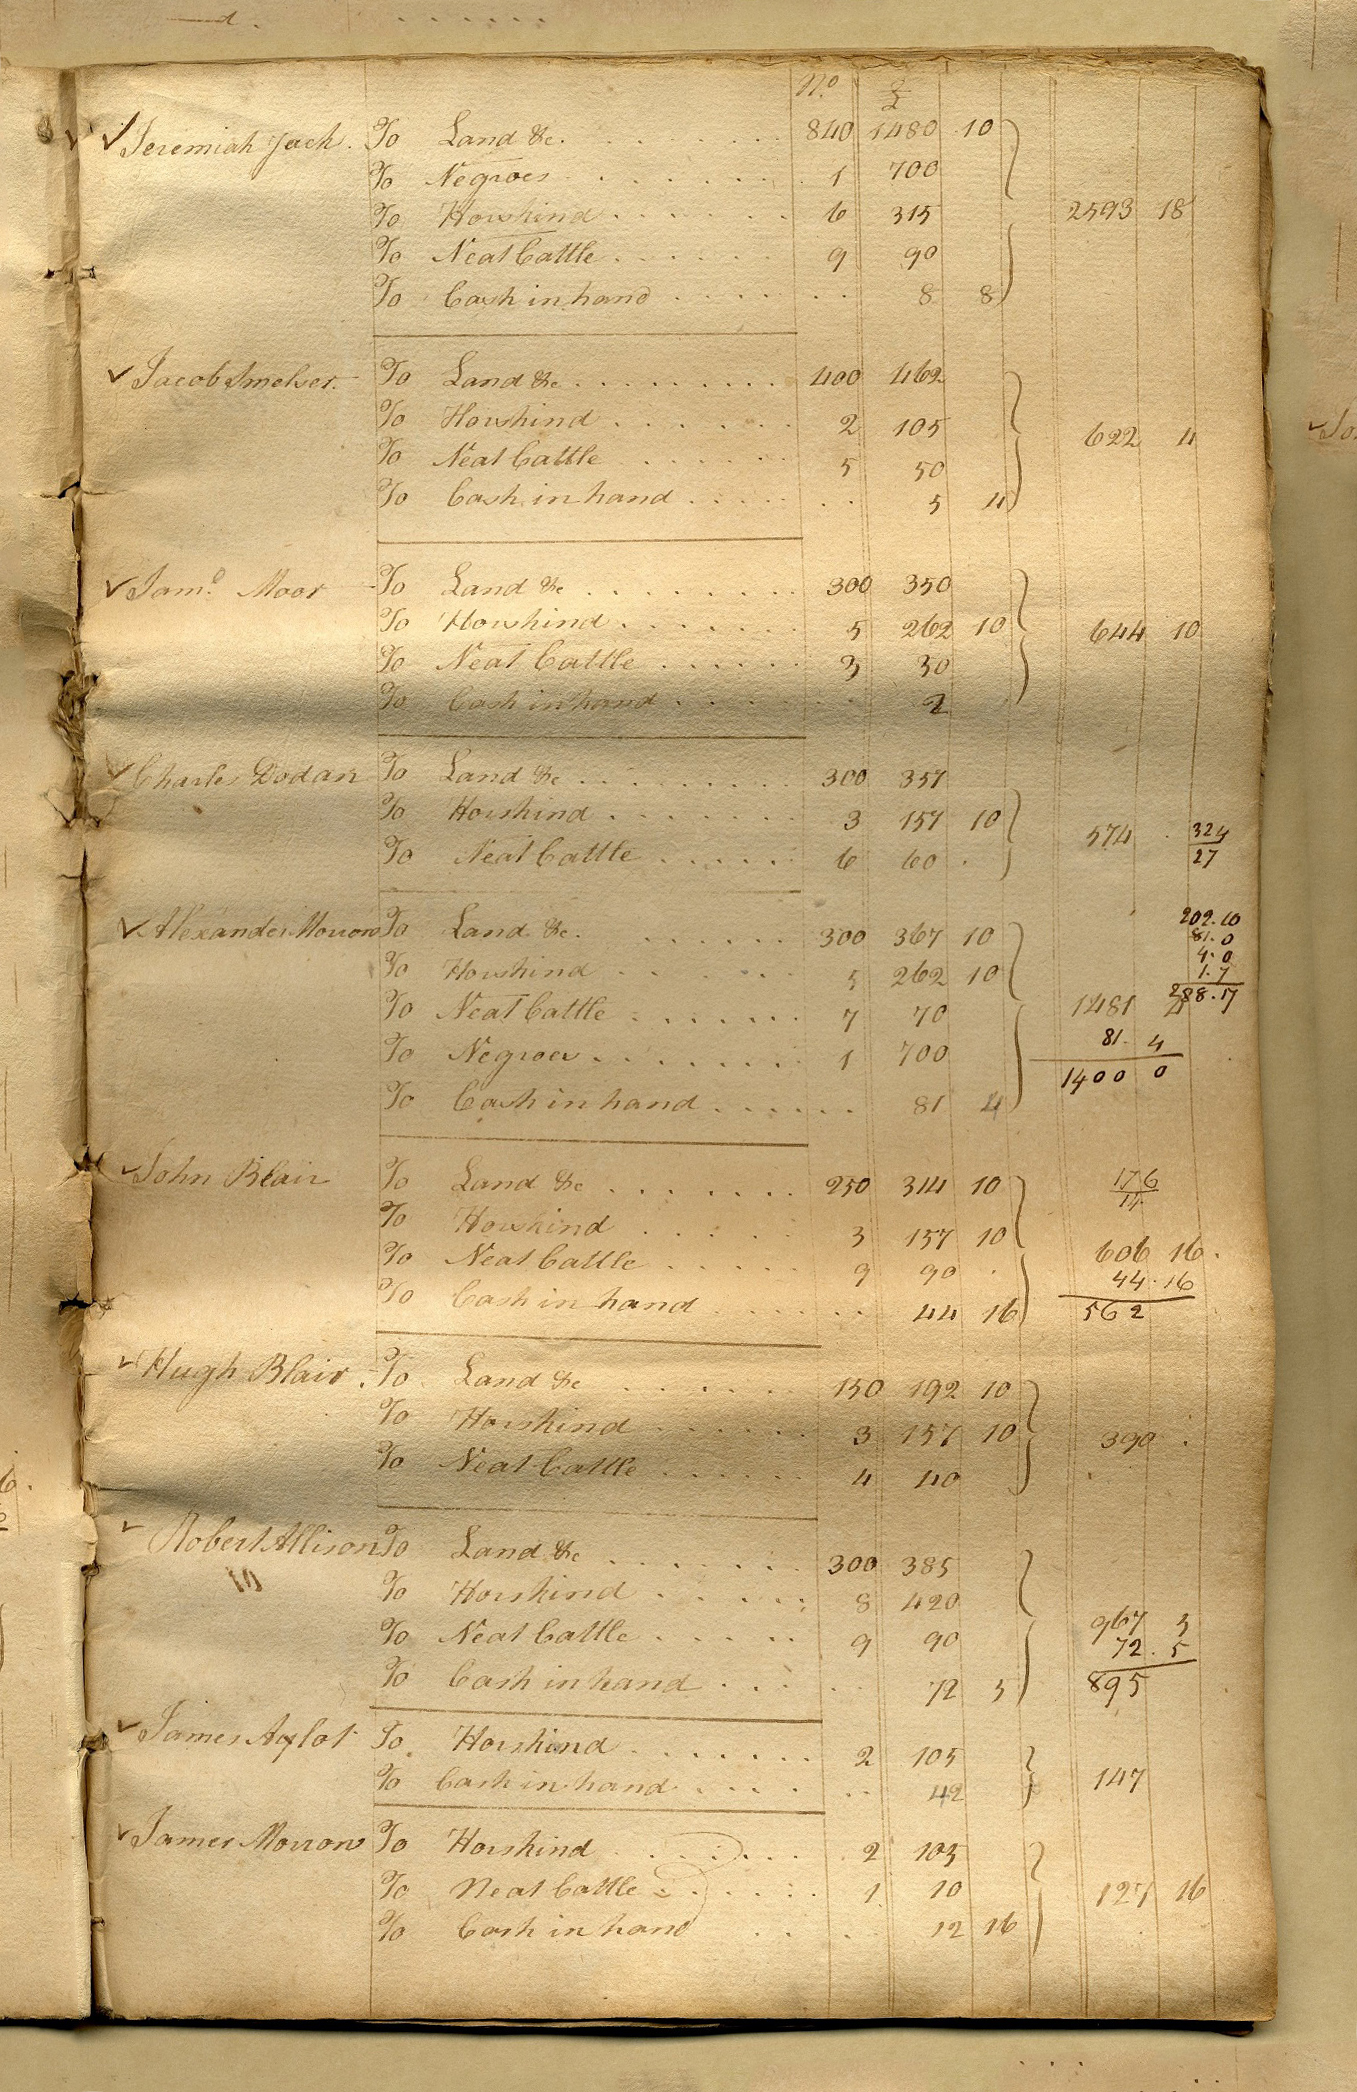 No. £
✓ Jeremiah Jack. To Land &c. 840 1480 10
To Negroes 1 700
To Horskind 6 315 2593 18
To Neat Cattle 9 90
To Cash in hand 8 8
✓ Jacob Smelser. To Land &c 400 462
To Horskind 2 105 622 4
To Neat Cattle 5 50
To Cash in hand 5 4
✓ Moor To Land &c 300 350
To Horskind 5 262 10 644 10
To Neat Cattle 3 30
To Cash in hand 2
✓ Charles Dodan To Land &c 300 357
To Horskind 3 157 10 574 324
To Neat Cattle 6 60 27
✓ Alexander Morrow To Land &c. 300 367 10 202.10
81.0
To Horskind 5 262 10 4.0
1.7
To Neat Cattle 7 70 1481 4 288.17
To Negroes 1 700 81. 4
1400 0
To Cash in hand 81 4
✓ John Blair To Land &c 250 314 10 176
14
To Horskind 3 157 10
To Neat Cattle 9 90 606 16.
To Cash in hand 44 16 44.16
562
✓ Hugh Blair. To Land &c 150 192 10
To Horskind 3 157 10 390
To Neat Cattle 4 40
✓ Robert Allison To Land &c 300 385
To Horskind 8 420
To Neat Cattle 9 90 967 5
72.5
To Cash in hand 72 5 895
✓ James To Horskind 2 105
To Cash in hand 42 147
✓ James Morrow To Horskind 2 105
To Neat Cattle 1 10 127 16
To Cash in hand 12 16